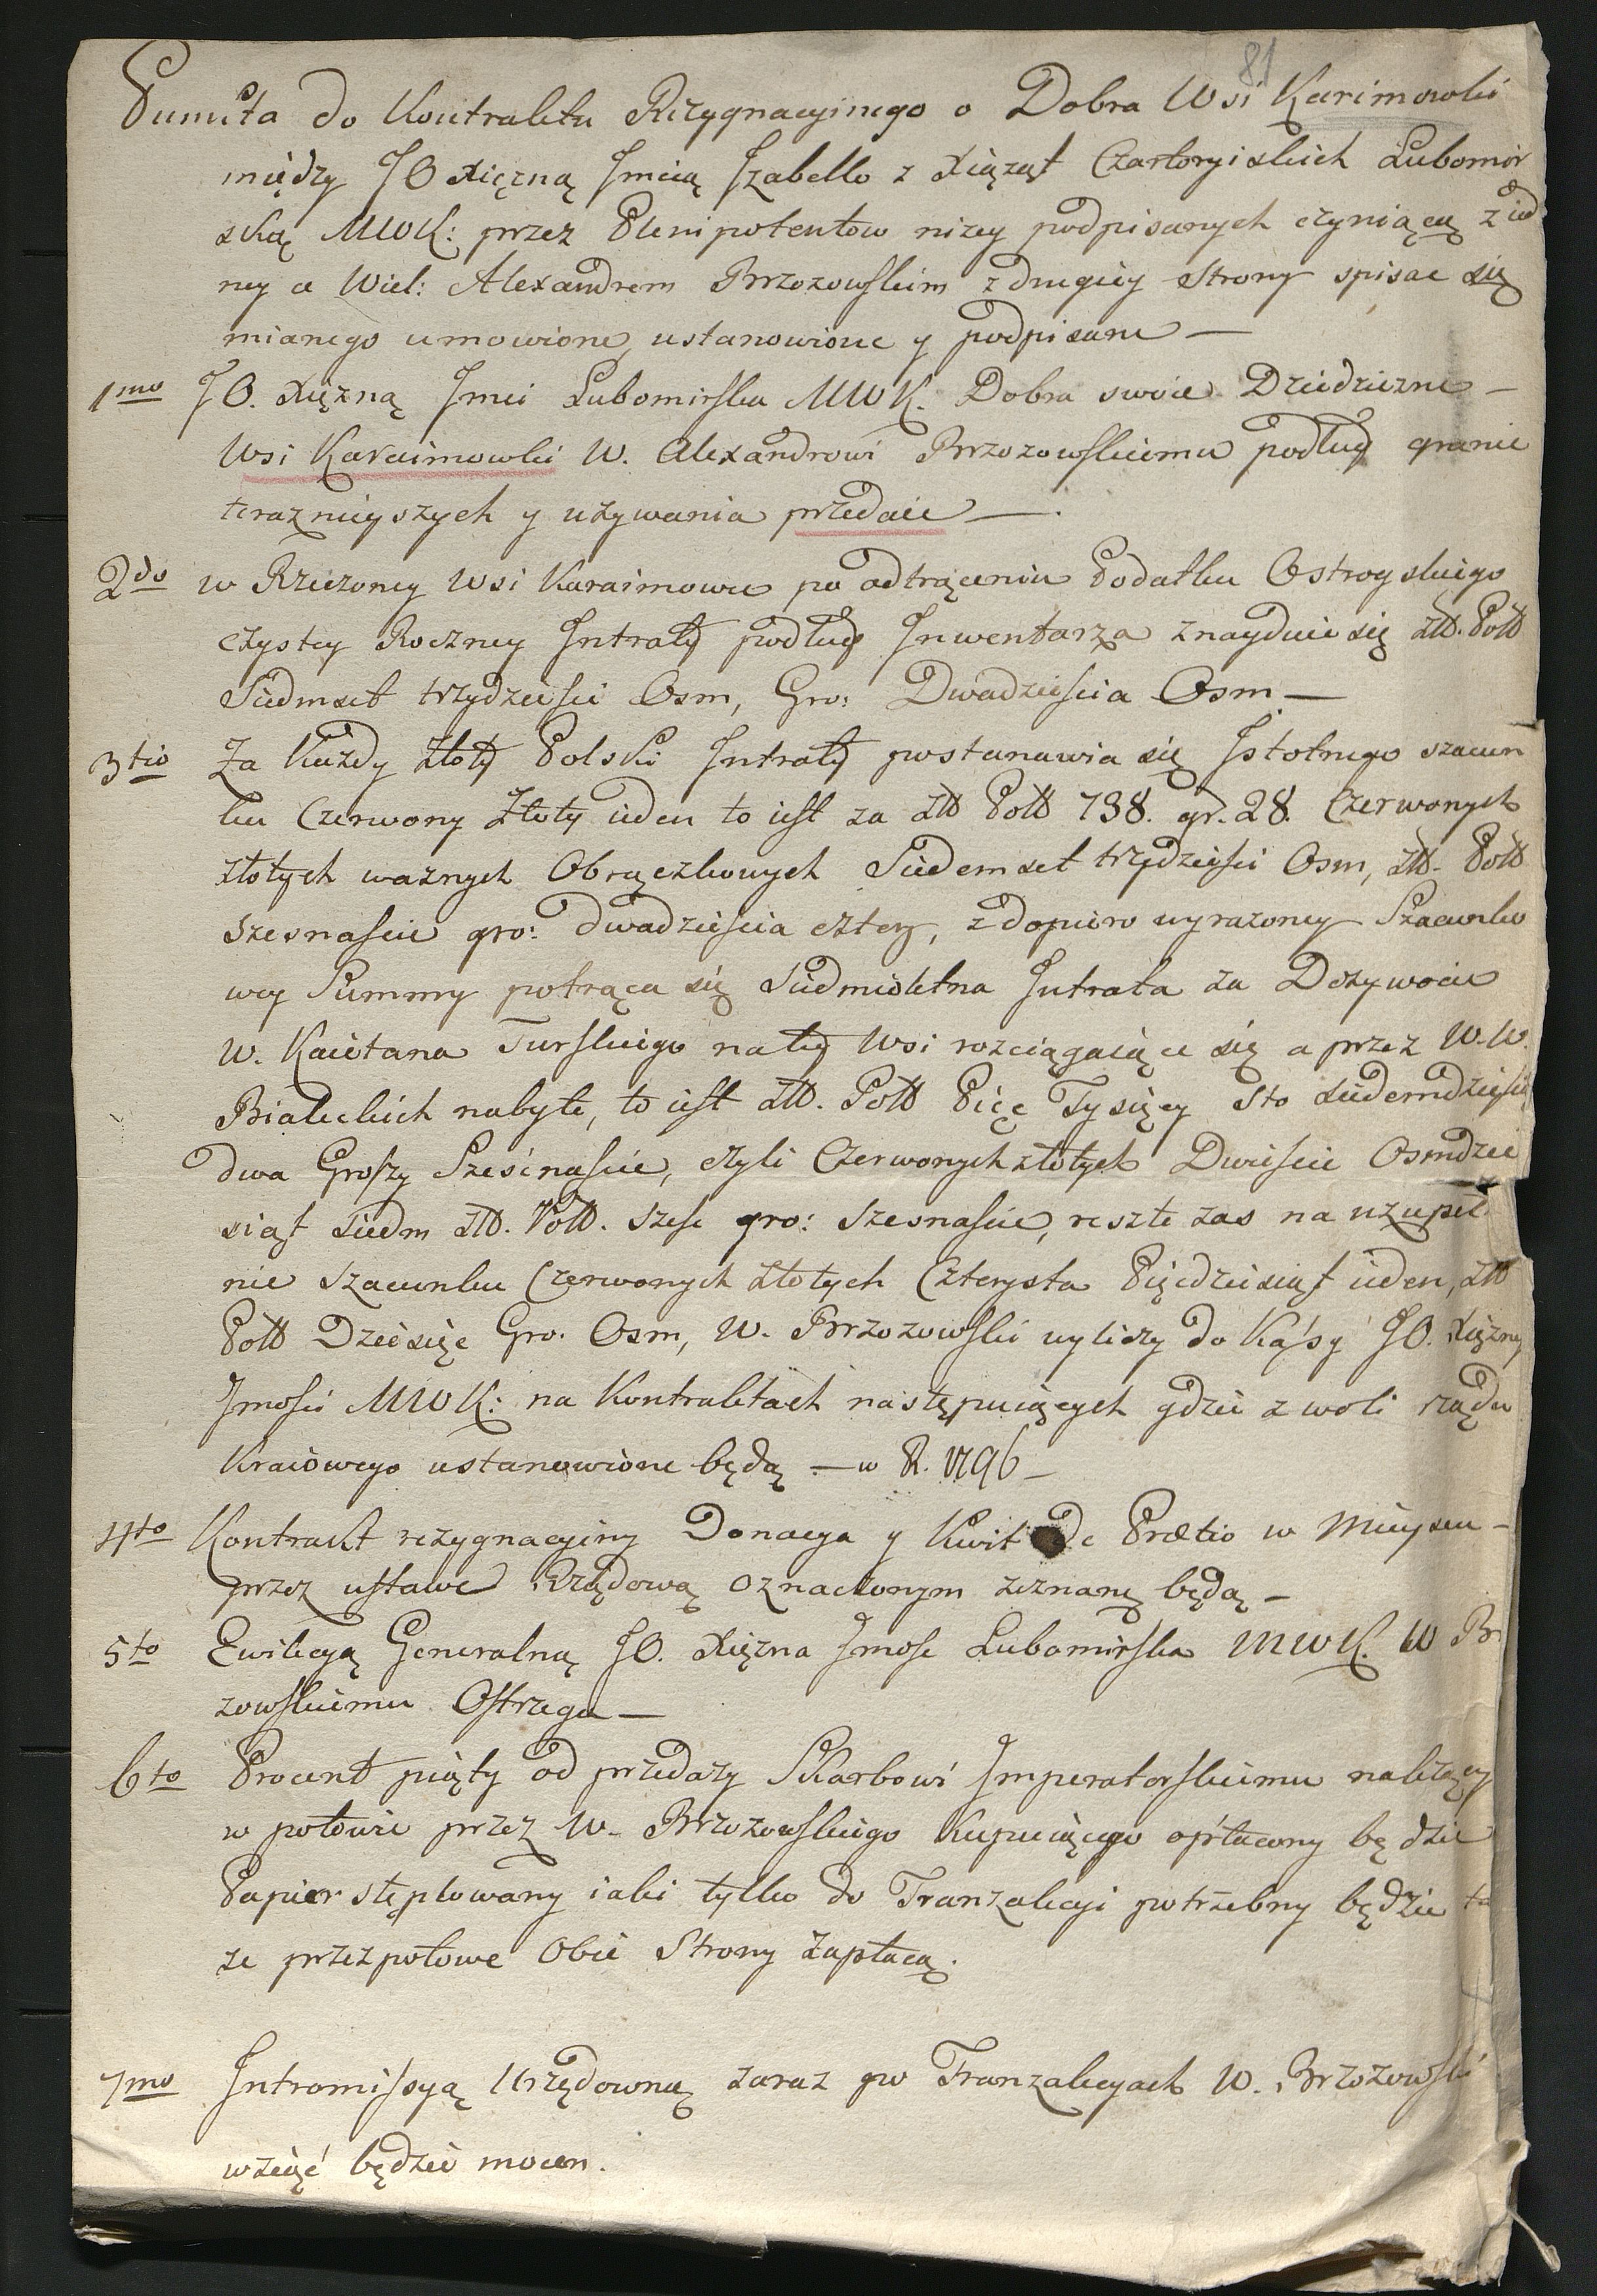 81
Punkta do Kontraktu Rezygnacyinego o Dobra Wsi Karimowki
między JO Xięzną Jmcią Jzabellą z Xiąząt Czartoryiskich Lubomir
ską MWK: przez Plenipotentow nizey podpisanych czyniącą z ied
ney a Wiel: Alexandrem Brzozowskim z drugiey Strony spisac się
mianego umowione, ustanowione y podpisane —
1mo JO. Xięzną Jmci Lubomirska MWK. Dobra swoie Dziedziczne —
Wsi Karaimowki W. Alexandrowi Brzozowskiemu podług granic
teraznieyszych y uzywania przedaie —.
2do w Rzeczoney Wsi Karaimowce po odtrąceniu Podatku Ostrogskiego
czystey Roczney Jntraty podług Jnwentarza znayduie się Złł. Poll
Siedmset trzydziesci Osm, Gro: Dwadziescia Osm —
3tio Za Kazdy Złoty Polski Jntraty postanawia się Jstotnego szacun
ku Czerwony Złoty ieden to iest za Złł Poll 738. gr. 28. Czerwonych
złotych waznych Obrączkowych Siedemset trzydziesci Osm, Złł. Poll
szesnascie gro: dwadziescia cztery, z dopiero wyrazoney Szacunko
wey Summy potrąca się Siedmioletna Jntrata za Dozywocie
W. Kaietana Turskiego na tey Wsi rozciągaiące się a przez W.W.
Bialeckich nabyte, to iest Złł. Poll Pięc Tysięcy Sto siedemdziesiąt
dwa Groszy Sześcnascie, czyli Czerwonych złotych Dwiescie Osmdzie
siąt siedm Złł. Poll. szesc gro: szesnascie, reszte zas na uzupeł
nie szacunku Czerwonych złotych Czterysta Pięcdziesiąt ieden, Złł
Poll Dziesięc Gro. Osm, W. Brzozowski wyliczy do Kassy JO. Xięzney
Jmosci MWK: na Kontraktach następuiących gdzie z woli rządu
Kraiowego ustanowione będą — w R. 1796 —
4to Kontrakt rezygnacyiny Donacya y Kwit De Prætio w Mieyscu —
przez ustawe Rządową oznaczonym zeznane będą —
5to Ewikcyą Generalną JO. Xięzna Jmosc Lubomirska MWK. W Br
zowskiemu Ostrzega —
6to Procent piąty od przedazy Skarbowi Jmperatorskiemu nalezący
w połowie przez W. Brzozowskiego Kupuiącego opłacony będzie
Papier stęplowany iaki tylko do Tranzakcyi potrzebny będzie ta
ze przez połowe Obie Strony zapłacą.
7mo Jntromissyą Urzędowną zaraz po Tranzakcyach W. Brzozowski
wziąść będzie mocen.